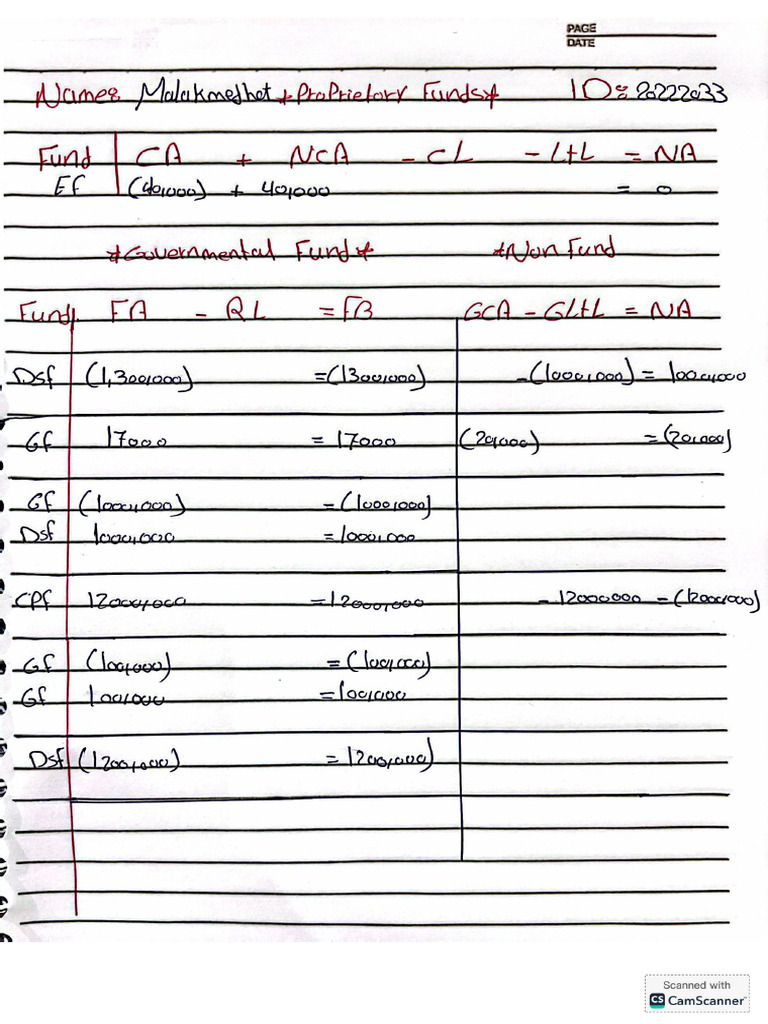 PAGE
DATE
Name: Malakmeshet *Proprietary Funds* ID: 20222033
Fund CA + NCA - CL - LtL = NA
Ef (40,000) + 40,000 = 0
*Governmental Fund* *Non Fund
Fund FA - RL = FB GCA - GLtL = NA
Dsf (1,300,000) =(1300,000) -(1000,000) = 1000,000
Gf 17000 = 17000 (20,000) =(20,000)
Gf (1000,000) =(1000,000)
Dsf 1000,000 =1000,000
CPf 12000,000 =12000,000 - 12000000 = (12000,000)
Gf (100,000) =(100,000)
Gf 100,000 =100,000
Dsf (1200,000) =1200,000)
Scanned with
CS CamScanner